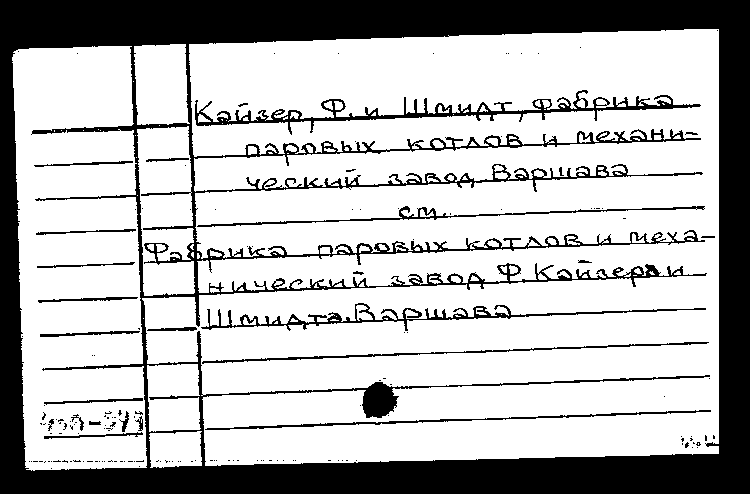 Кайзер, Ф. и Шмидт, фабрика
паровых котлов и механи-
ческий завод Варшава
см.
Фабрика паровых котлов и меха-
нический завод Ф. Кайзера и
Шмидта. Варшава